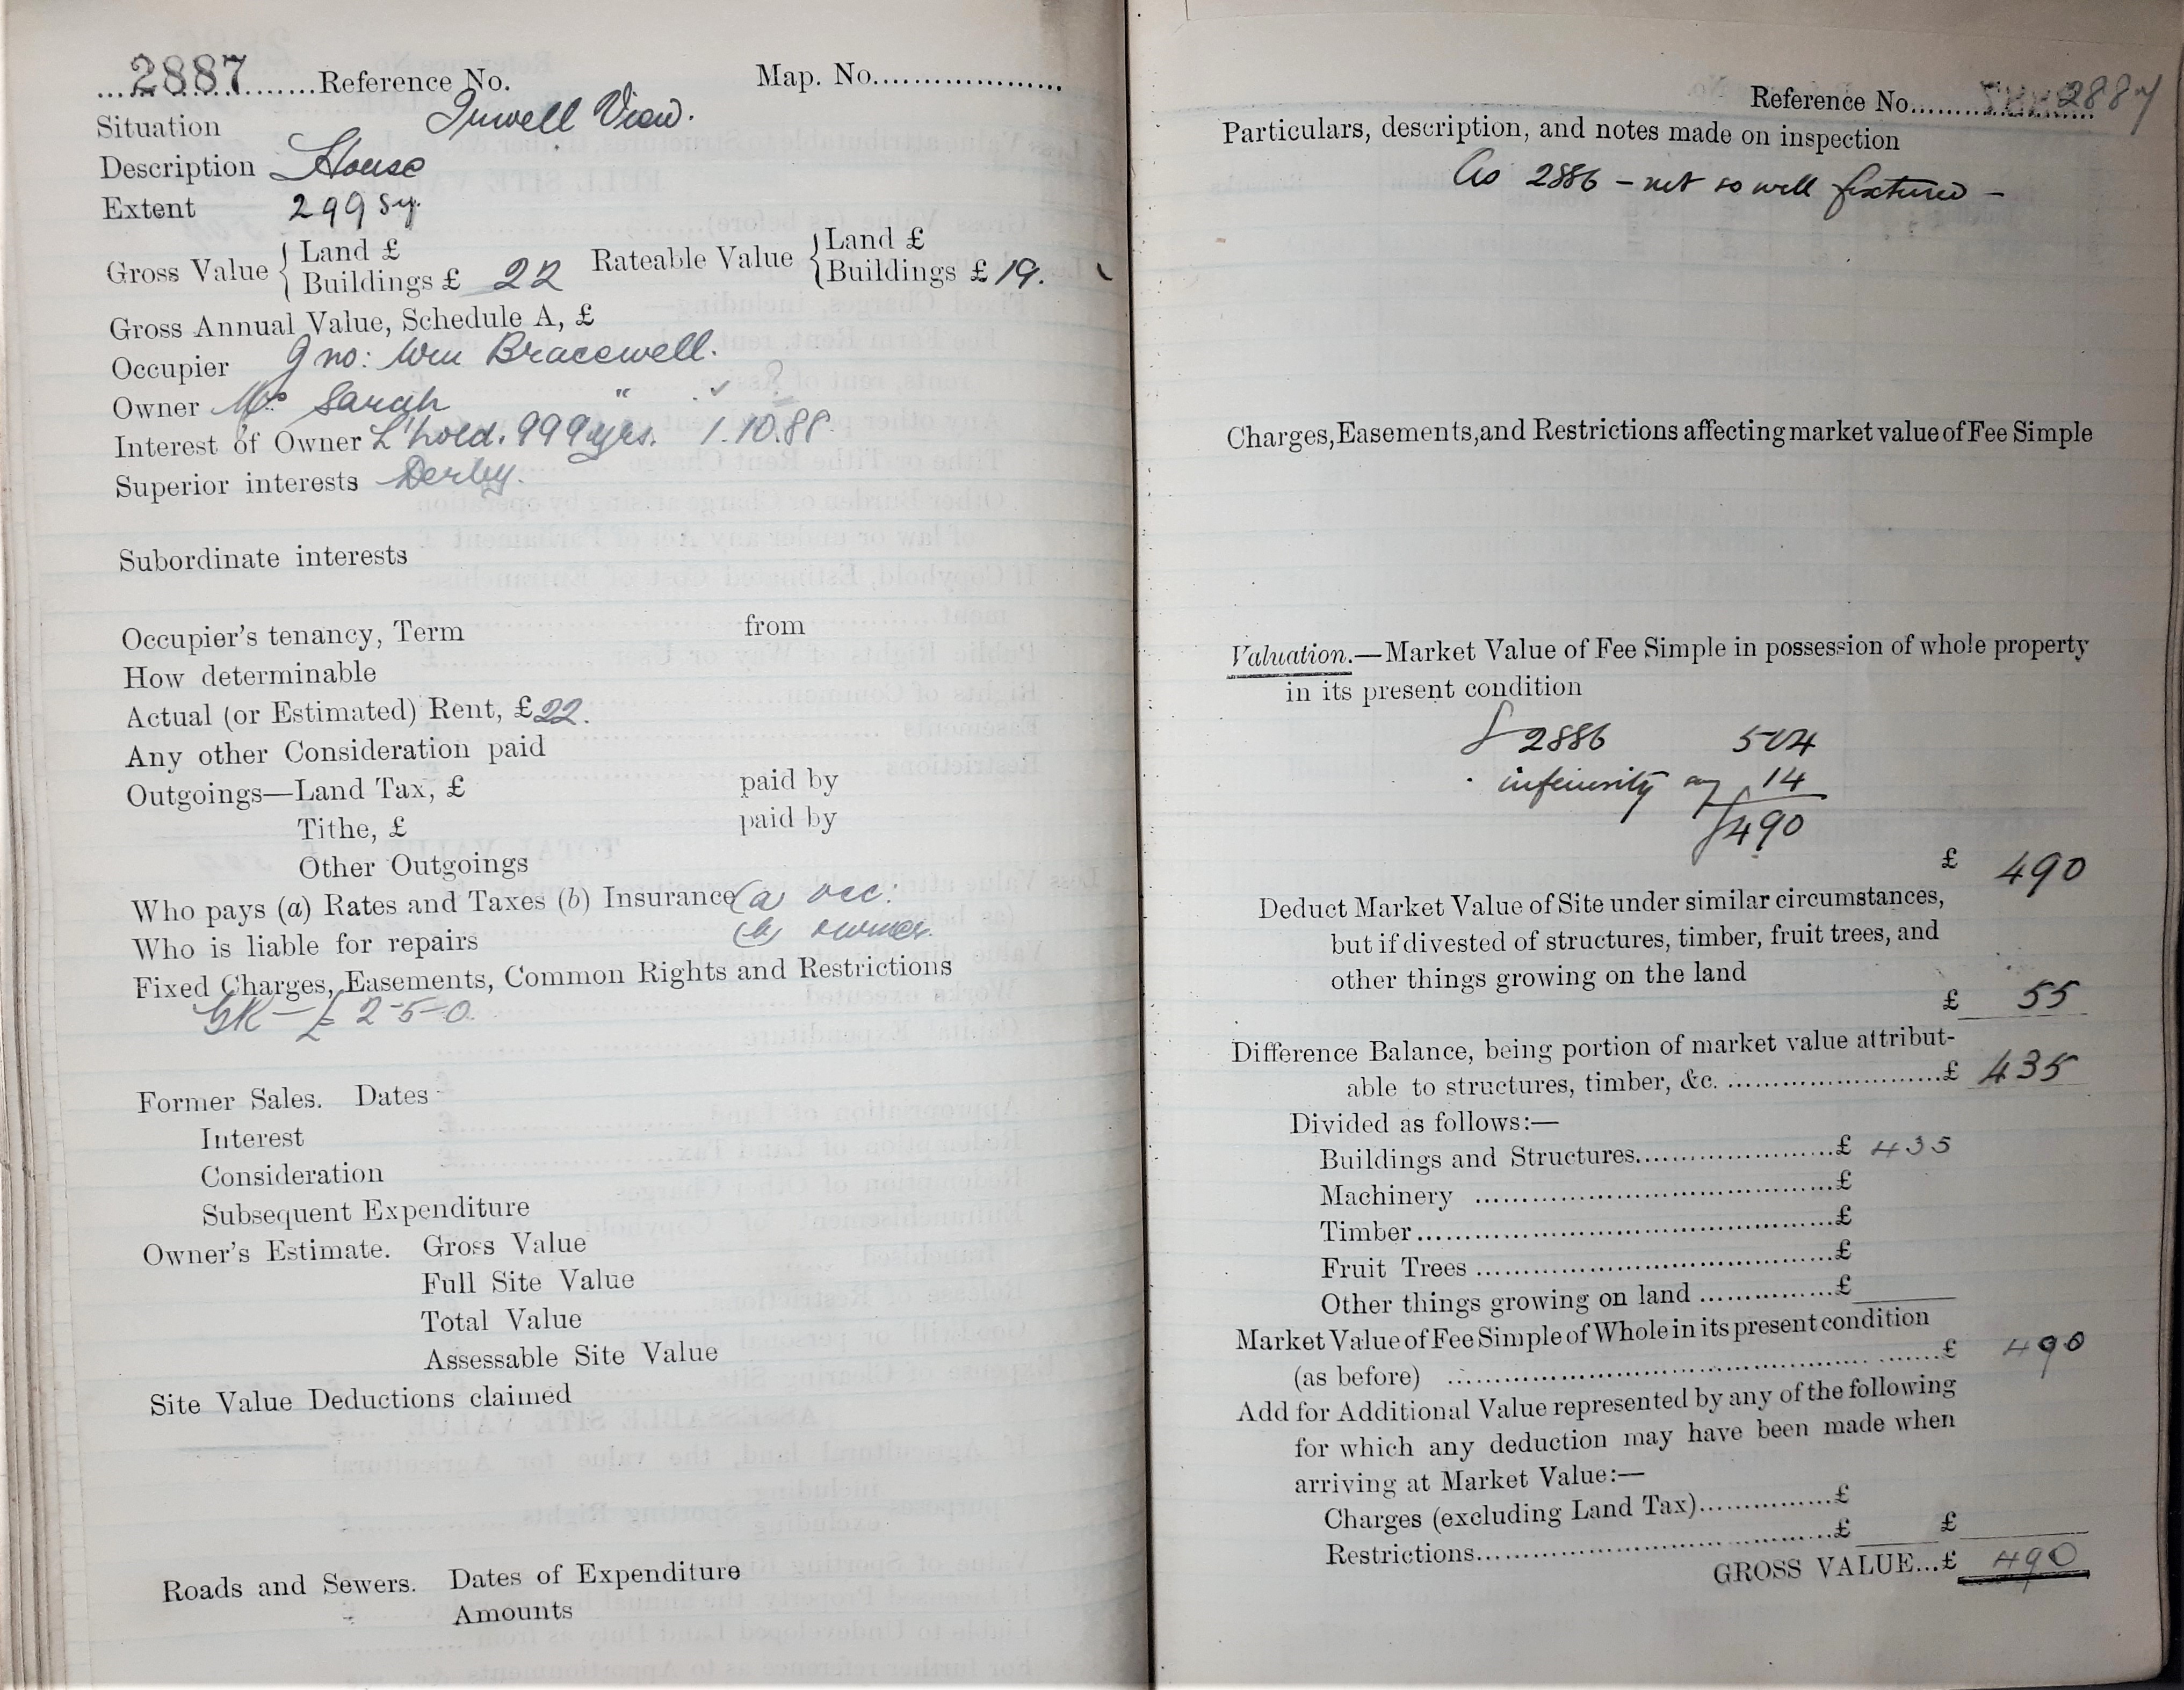 2887 Reference No. Map. No.
Situation Irwell View.
Description House
Extent 299 Sy.
Gross Value { Land £ Rateable Value { Land £
Buildings £ 22 Buildings £ 19.
Gross Annual Value, Schedule A, £
Occupier Jno: Wm Bracewell.
Owner Mrs Sarah " ✓ ?
Interest of Owner L'hold. 999 yrs. 1.10.88.
Superior interests Derby.
Subordinate interests
Occupier's tenancy, Term from
How determinable
Actual (or Estimated) Rent, £ 22.
Any other Consideration paid
Outgoings—Land Tax, £ paid by
Tithe, £ paid by
Other Outgoings
Who pays (a) Rates and Taxes (b) Insurance (a) occ:
Who is liable for repairs (b) owner.
Fixed Charges, Easements, Common Rights and Restrictions
GR — £2-5-0.
Former Sales. Dates
Interest
Consideration
Subsequent Expenditure
Owner's Estimate. Gross Value
Full Site Value
Total Value
Assessable Site Value
Site Value Deductions claimed
Roads and Sewers. Dates of Expenditure
Amounts
Reference No. 2887
Particulars, description, and notes made on inspection
As 2886 – not so well fixtured –
Charges, Easements, and Restrictions affecting market value of Fee Simple
Valuation.—Market Value of Fee Simple in possession of whole property
in its present condition
£ 2886 504
inferiority say 14
£490
£ 490
Deduct Market Value of Site under similar circumstances,
but if divested of structures, timber, fruit trees, and
other things growing on the land
£ 55
Difference Balance, being portion of market value attribut-
able to structures, timber, &c. £ 435
Divided as follows:—
Buildings and Structures £ 435
Machinery £
Timber £
Fruit Trees £
Other things growing on land £
Market Value of Fee Simple of Whole in its present condition
(as before) £ 490
Add for Additional Value represented by any of the following
for which any deduction may have been made when
arriving at Market Value:—
Charges (excluding Land Tax) £
Restrictions £ £
GROSS VALUE...£ 490